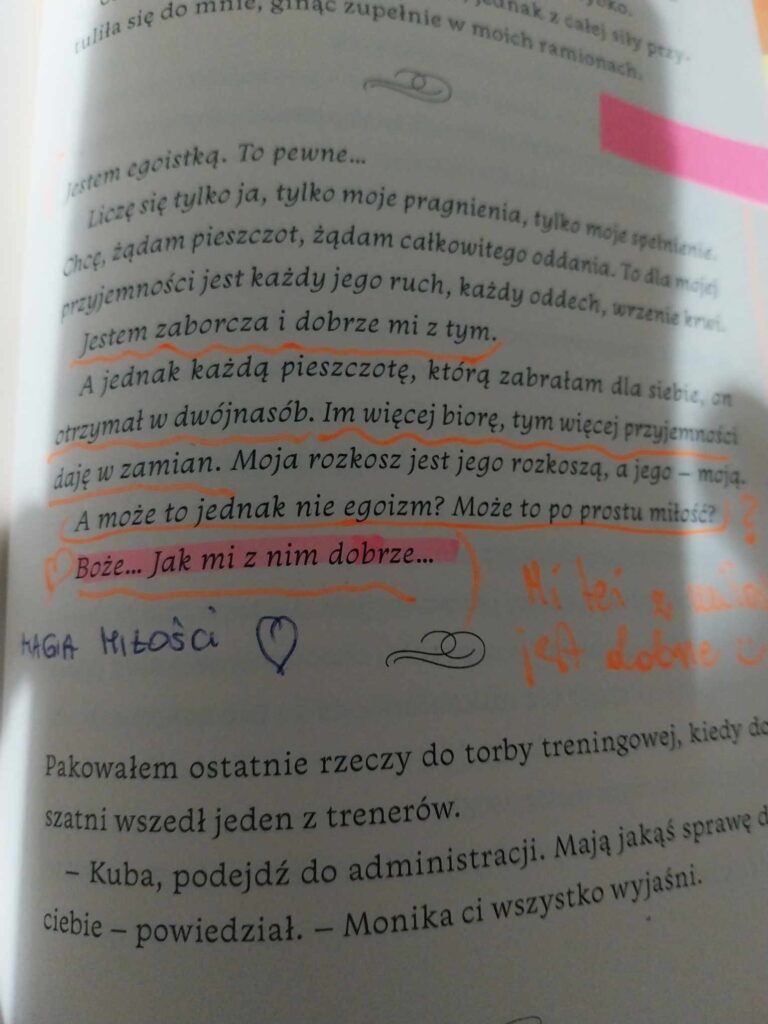 jednak z całej siły przy-
tuliła się do mnie, ginąc zupełnie w moich ramionach.
Jestem egoistką. To pewne...
Liczę się tylko ja, tylko moje pragnienia, tylko moje spełnienie.
Chcę, żądam pieszczot, żądam całkowitego oddania. To dla mojej
przyjemności jest każdy jego ruch, każdy oddech, wrzenie krwi.
Jestem zaborcza i dobrze mi z tym.
A jednak każdą pieszczotę, którą zabrałam dla siebie, on
otrzymał w dwójnasób. Im więcej biorę, tym więcej przyjemności
daję w zamian. Moja rozkosz jest jego rozkoszą, a jego – moją.
A może to jednak nie egoizm? Może to po prostu miłość?
?
Boże... Jak mi z nim dobrze...
MAGIA MIŁOŚCI
Mi też z
jest dobrze
Pakowałem ostatnie rzeczy do torby treningowej, kiedy do
szatni wszedł jeden z trenerów.
– Kuba, podejdź do administracji. Mają jakąś sprawę d
ciebie – powiedział. – Monika ci wszystko wyjaśni.